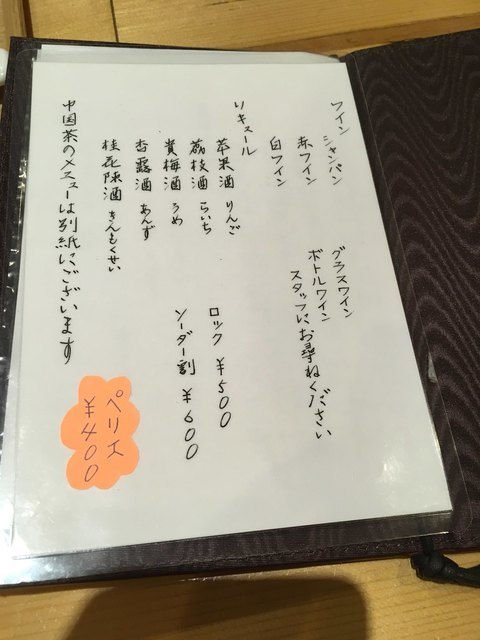 ワイン
シャンパン
赤ワイン
白ワイン
グラスワイン
ボトルワイン
スタッフにお尋ねください
リキュール
苹果酒 りんご
荔枝酒 らいち
貴梅酒 うめ
杏露酒 あんず
桂花陳酒 きんもくせい
ロック ¥500
ソーダー割 ¥600
中国茶のメニューは別紙にございます
ペリエ
¥400